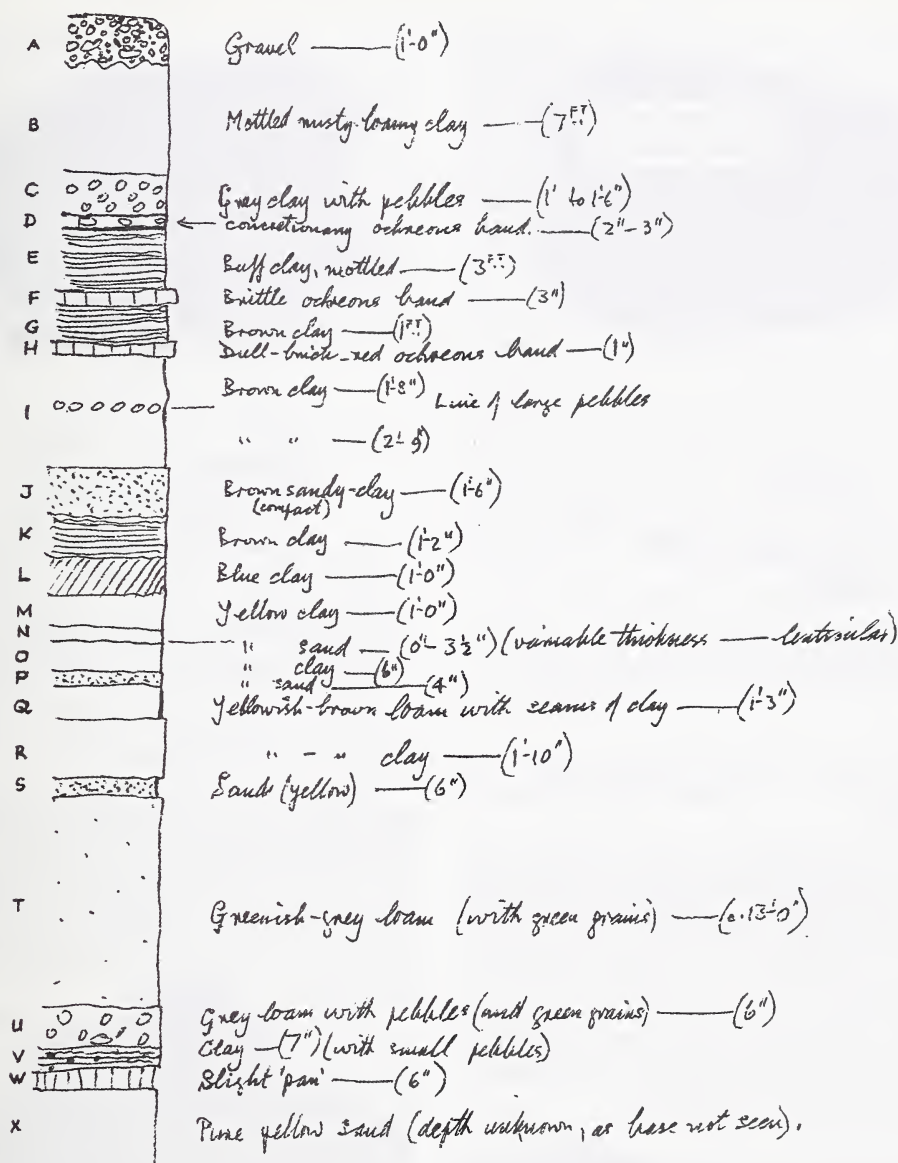 A Gravel — (1'-0")
B Mottled rusty-loamy clay — (7 FT)
C Grey clay with pebbles — (1' to 1'-6")
D ← concretionary ochreous band. — (2"-3")
E Buff clay, mottled — (3 FT)
F Brittle ochreous band — (3")
G Brown clay — (1 FT)
H Dull-brick-red ochreous band — (1")
Brown clay — (1'-8")
I Line of large pebbles
" " — (2'-9")
J Brown sandy-clay — (1'-6")
(compact)
K Brown clay — (1'-2")
L Blue clay — (1'-0")
M Yellow clay — (1'-0")
N " sand — (0"- 3½") (variable thickness — lenticular)
O " clay — (6")
P " sand — (4")
Q Yellowish-brown loam with seams of clay — (1'-3")
R " - " clay — (1'-10")
S Sands (yellow) — (6")
T Greenish-grey loam (with green grains) — (c.13'-0")
U Grey loam with pebbles (and green grains) — (6")
V Clay — (7") (with small pebbles)
W Slight 'pan' — (6")
X Pure yellow sand (depth unknown, as base not seen).